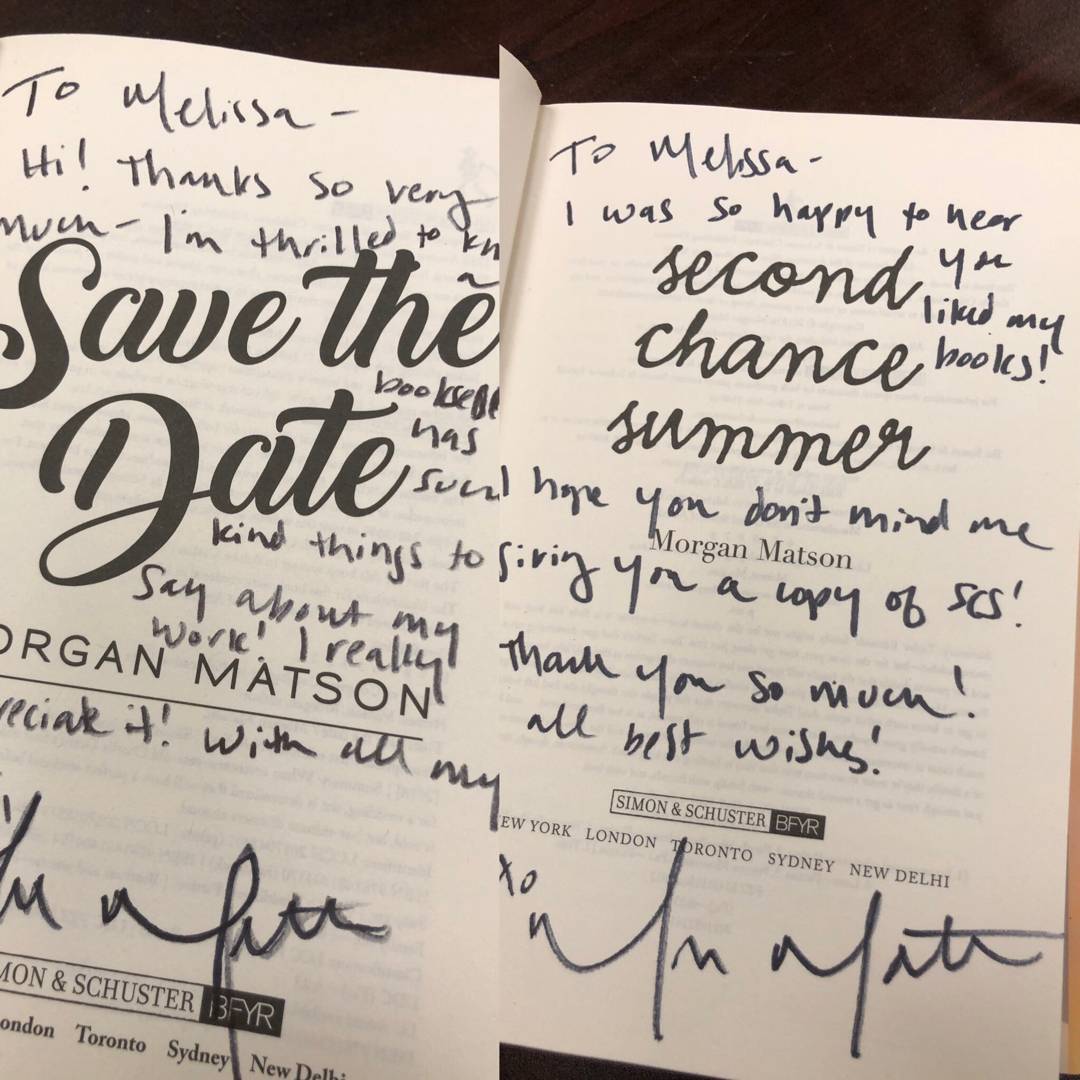 To Melissa-
Hi! Thanks so very
much- I'm thrilled to kn
a
Save the
booksell
has
Date
such
kind things to
say about my
work! I really
ORGAN MATSON
reciate it! With all my
MON & SCHUSTER BFYR
ondon Toronto Sydney New Delhi
To Melissa-
I was so happy to hear
you
second
liked my
chance
books!
summer
I hope you don't mind me
Morgan Matson
giving you a copy of SCS!
Thank you so much!
all best wishes!
SIMON & SCHUSTER BFYR
EW YORK LONDON TORONTO SYDNEY NEW DELHI
xo